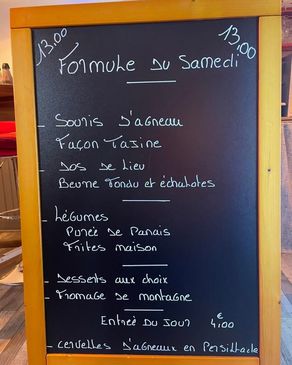 13.00
13.00
Formule du Samedi
- Souris d'agneau
Façon Tazine
- Dos de Lieu
Beurre fondu et échalotes
- Légumes
Purée de Panais
Frites maison
- Desserts aux choix
- Fromage de montagne
Entrée du Jour 4,00 €
- cervelles d'agneaux en Persillade